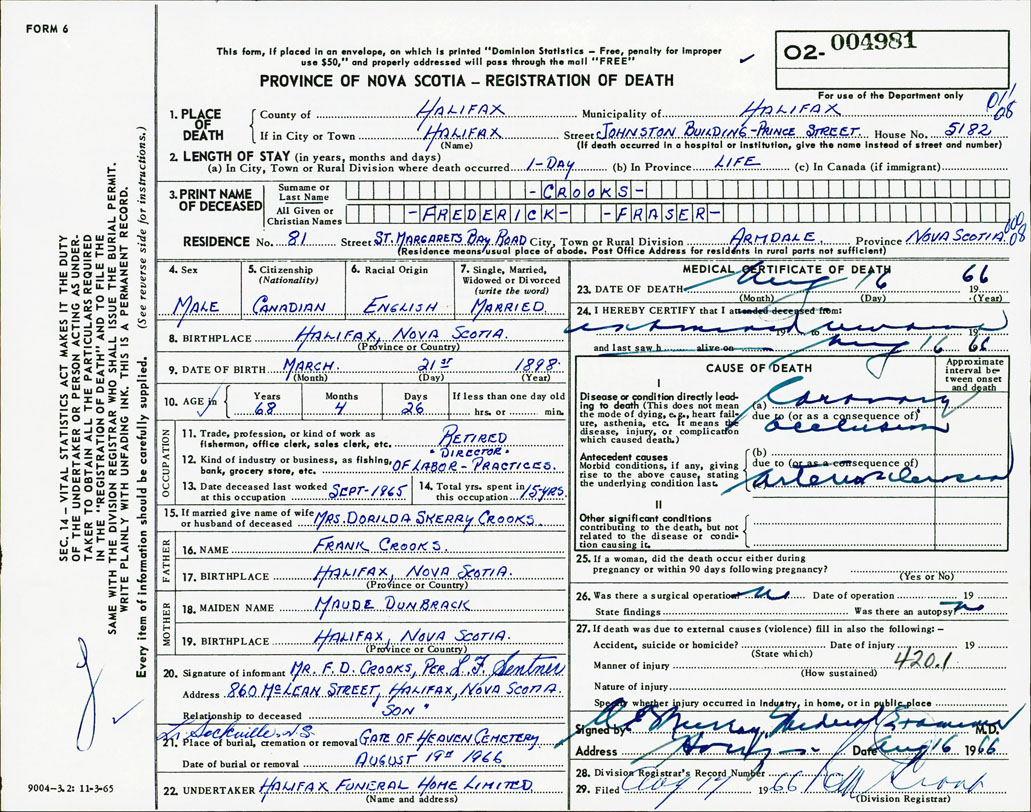 FORM 6
This form, if placed in an envelope, on which is printed "Dominion Statistics – Free, penalty for improper
use $50," and properly addressed will pass through the mail "FREE"
PROVINCE OF NOVA SCOTIA – REGISTRATION OF DEATH
O2- 004981
For use of the Department only
011
08
1. PLACE OF DEATH
County of HALIFAX Municipality of HALIFAX
If in City or Town HALIFAX Street JOHNSTON BUILDING-PRINCE STREET House No. 5182
(Name) (If death occurred in a hospital or institution, give the name instead of street and number)
2. LENGTH OF STAY (in years, months and days)
(a) In City, Town or Rural Division where death occurred 1-DAY (b) In Province LIFE (c) In Canada (if immigrant)
3. PRINT NAME OF DECEASED
Surname or Last Name -CROOKS-
All Given or Christian Names -FREDERICK- -FRASER-
RESIDENCE No. 81 Street ST. MARGARETS BAY ROAD City, Town or Rural Division ARMDALE Province NOVA SCOTIA.
(Residence means usual place of abode. Post Office Address for residents in rural parts not sufficient)
4. Sex
MALE
5. Citizenship (Nationality)
CANADIAN
6. Racial Origin
ENGLISH
7. Single, Married, Widowed or Divorced (write the word)
MARRIED
8. BIRTHPLACE HALIFAX, NOVA SCOTIA.
(Province or Country)
9. DATE OF BIRTH MARCH 21ST 1898
(Month) (Day) (Year)
10. AGE in Years Months Days If less than one day old
68 4 26 hrs. or min.
OCCUPATION
11. Trade, profession, or kind of work as fisherman, office clerk, sales clerk, etc. RETIRED
12. Kind of industry or business, as fishing, bank, grocery store, etc. "DIRECTOR" OF LABOR-PRACTICES.
13. Date deceased last worked at this occupation SEPT-1965
14. Total yrs. spent in this occupation 15 YRS.
15. If married give name of wife or husband of deceased MRS. DORILDA SKERRY CROOKS
FATHER
16. NAME FRANK CROOKS.
17. BIRTHPLACE HALIFAX, NOVA SCOTIA.
(Province or Country)
MOTHER
18. MAIDEN NAME MAUDE DUNBRACK
19. BIRTHPLACE HALIFAX, NOVA SCOTIA.
(Province or Country)
20. Signature of informant MR. F. D. CROOKS, PER. L. F. Sentner
Address 860 MCLEAN STREET, HALIFAX, NOVA SCOTIA.
Relationship to deceased "SON"
Sackville, N.S.
21. Place of burial, cremation or removal GATE OF HEAVEN CEMETERY
Date of burial or removal AUGUST 19TH 1966
22. UNDERTAKER HALIFAX FUNERAL HOME LIMITED
(Name and address)
MEDICAL CERTIFICATE OF DEATH
23. DATE OF DEATH Aug 16 1966
(Month) (Day) (Year)
24. I HEREBY CERTIFY that I attended deceased from:
19 to 19
and last saw h alive on Aug 16 1966
CAUSE OF DEATH
Approximate interval between onset and death
I
Disease or condition directly leading to death (This does not mean the mode of dying, e.g., heart failure, asthenia, etc. It means the disease, injury, or complication which caused death.)
(a) Coronary
due to (or as a consequence of)
occlusion
Antecedent causes
Morbid conditions, if any, giving rise to the above cause, stating the underlying condition last.
(b)
due to (or as a consequence of)
arteriosclerosis
II
Other significant conditions
contributing to the death, but not related to the disease or condition causing it.
25. If a woman, did the death occur either during
pregnancy or within 90 days following pregnancy?
(Yes or No)
26. Was there a surgical operation? No Date of operation 19
State findings Was there an autopsy? No
27. If death was due to external causes (violence) fill in also the following: –
Accident, suicide or homicide? Date of injury 19
(State which)
Manner of injury 420.1
(How sustained)
Nature of injury
Specify whether injury occurred in Industry, in home, or in public place
Signed by Murray Medical Examiner M.D.
Address Date Aug 16 1966
28. Division Registrar's Record Number
29. Filed Aug 17 1966
(Division Registrar)
SEC. 14 – VITAL STATISTICS ACT MAKES IT THE DUTY
OF THE UNDERTAKER OR PERSON ACTING AS UNDERTAKER TO OBTAIN ALL THE PARTICULARS REQUIRED
IN THE "REGISTRATION OF DEATH" AND TO FILE THE
SAME WITH THE DIVISION REGISTRAR WHO SHALL ISSUE THE BURIAL PERMIT.
WRITE PLAINLY WITH UNFADING INK. THIS IS A PERMANENT RECORD.
Every item of information should be carefully supplied. (See reverse side for instructions.)
9004-3.2: 11-3-65